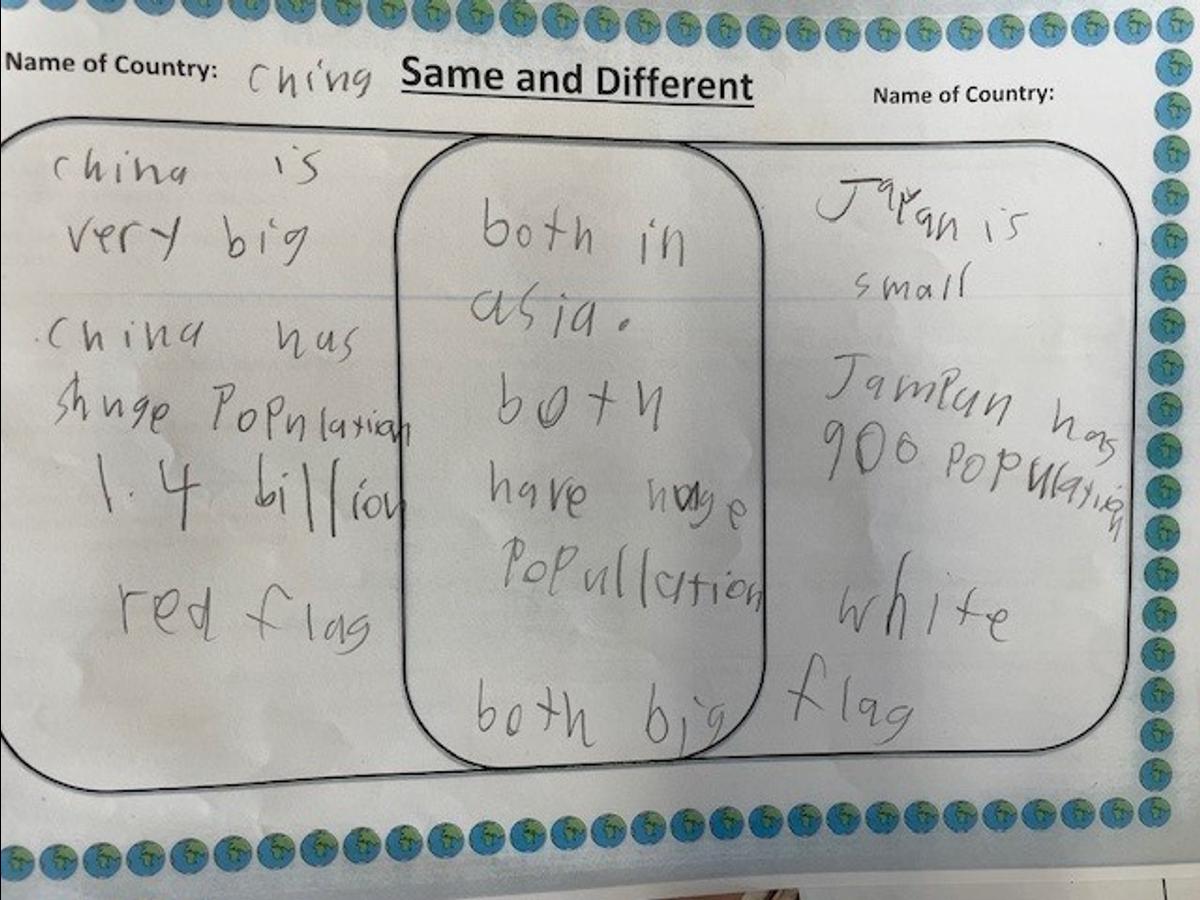 Name of Country: China
Same and Different
Name of Country:
china is
very big
China has
shuge Population
1.4 billion
red flag
both in
asia.
both
have huge
Popullation
both big
Japan is
small
JamPan has
900 Population
white
flag